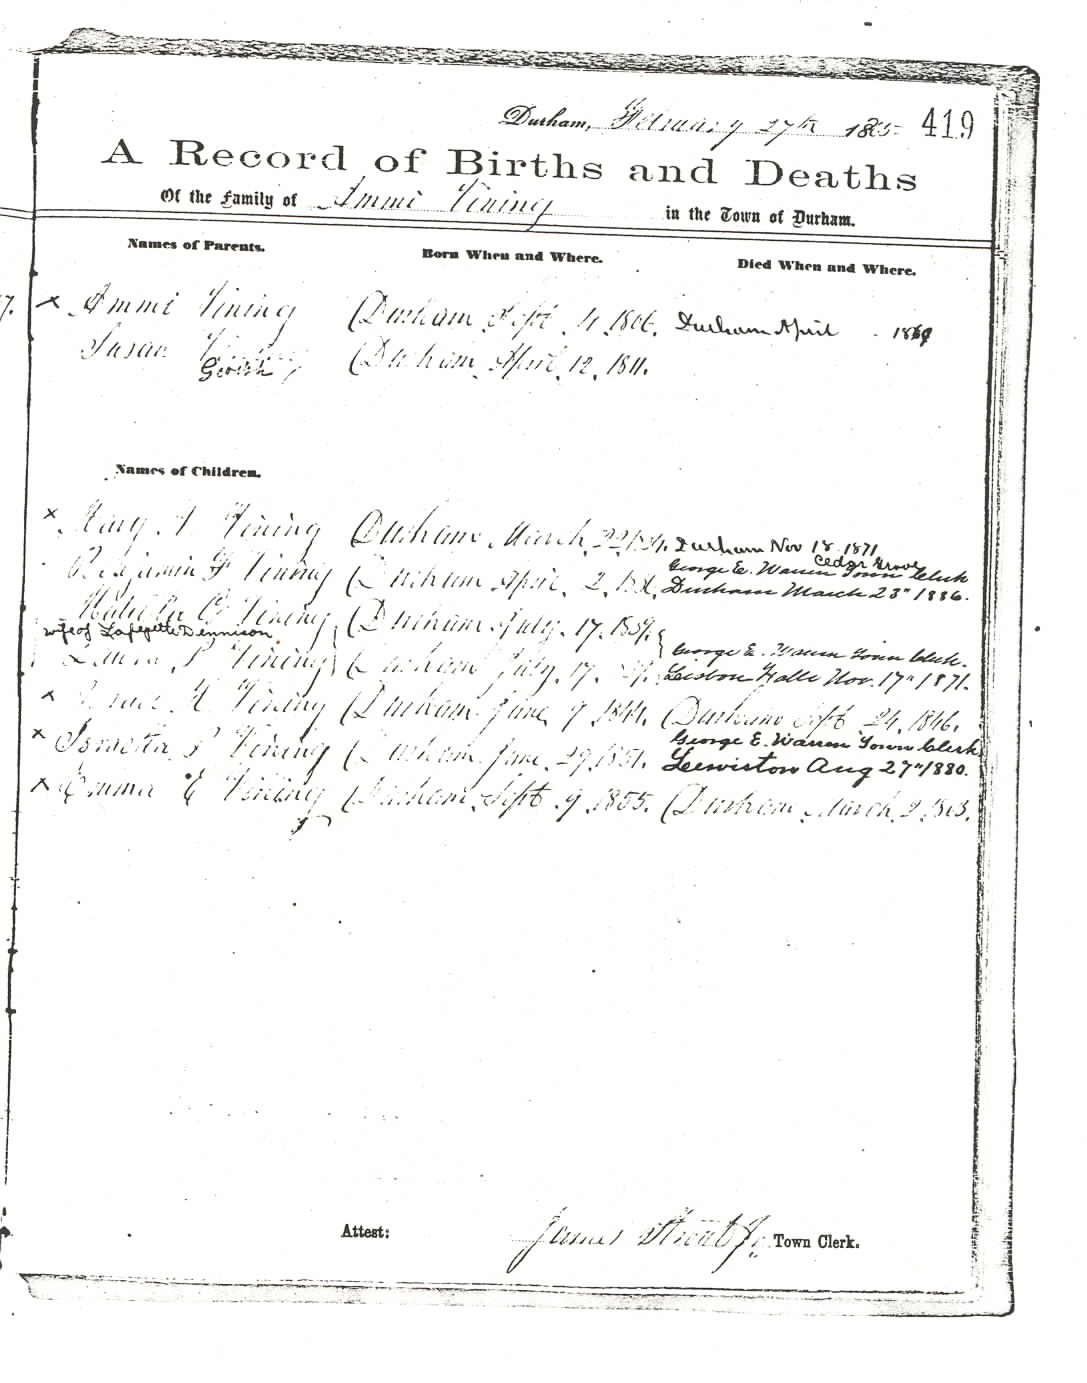 Durham, February 27th 1865. 419
A Record of Births and Deaths
Of the Family of Ammi Vining in the Town of Durham.
Names of Parents. Born When and Where. Died When and Where.
7. x Ammi Vining (Durham Sept. 4, 1806. Durham April 1869
Susan (Durham, April, 12, 1811.
Names of Children.
x Mary A Vining (Durham March, 22, Durham Nov 18 1871
Cedar Grove
George E. Warren Town Clerk
Benjamin F Vining (Durham April, 2, Durham March 23" 1886.
Vining (Durham July, 17, 1839.
wife of Lafayette Dennison George E. Warren Town Clerk.
P Vining (Durham July, 17, Lisbon Falls Nov. 17" 1871.
x Vining (Durham June 9 1844. (Durham Sept 24, 1846.
George E. Warren Town Clerk
x P Vining (Durham June, 29, 1851. Lewiston Aug 27" 1880.
x Emma E Vining (Durham, Sept. 9, 1855. (Durham March, 2, 1863.
Attest: James Strout Jr. Town Clerk.